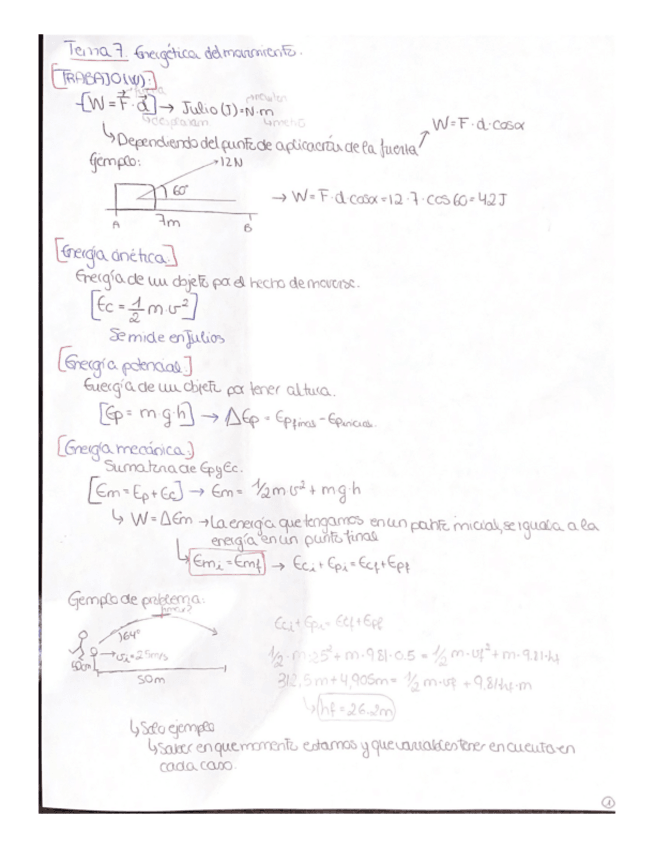 Tema 7. Energética del movimiento.
[TRABAJO (W):]
fuerza
[W = F · d] → Julio (J) = N·m
newton
metro
W = F · d · cosα
↳ Dependiendo del punto de aplicación de la fuerza
Ejemplo:
12N
60°
A 7m B
→ W = F · d · cosα = 12 · 7 · cos 60 = 42 J
[Energía cinética:]
Energía de un objeto por el hecho de moverse.
[Ec = 1/2 m · v²]
Se mide en Julios
[Energía potencial:]
Energía de un objeto por tener altura.
[Ep = m · g · h] → ΔEp = Epfinal - Epinicial.
[Energía mecánica:]
Sumatoria de Ep y Ec.
[Em = Ep + Ec] → Em = 1/2 m v² + m g · h
↳ W = ΔEm → La energía que tengamos en un punto inicial, se iguala a la
energía en un punto final
↳ Emi = Emf → Eci + Epi = Ecf + Epf
Ejemplo de problema:
64°
→ vi = 25m/s
50cm
50m
Eci + Epi = Ecf + Epf
1/2 · m · 25² + m · 9,81 · 0,5 = 1/2 m · vf² + m · 9,81 · hf
312,5m + 4,905m = 1/2 m · vf + 9,81hf · m
↳ hf = 26,2m
↳ Solo ejemplo
↳ Saber en que momento estamos y que variables tener en cuenta en
cada caso.
1